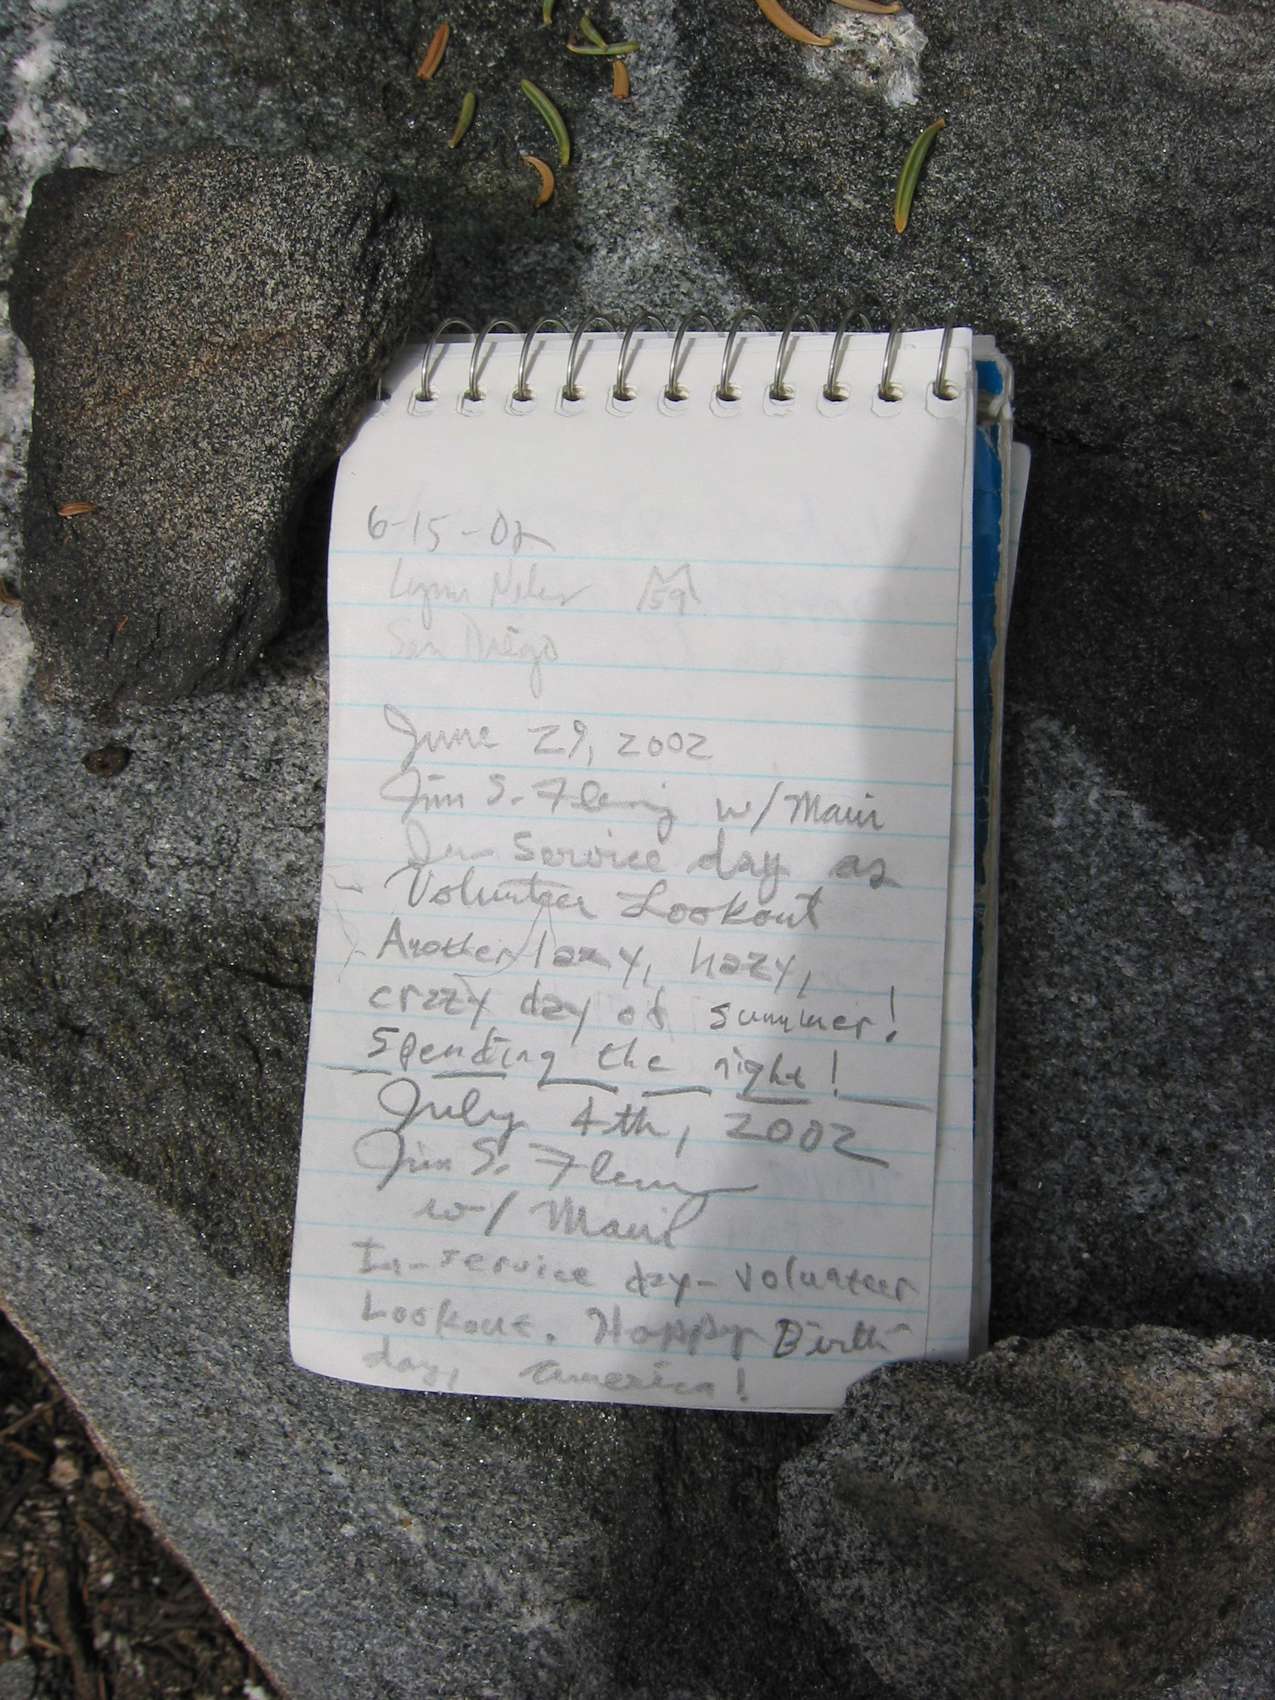 6-15-02
Lynn 59
San Diego
June 29, 2002
Jim S. Fleming w/ Maui
In-Service day as
Volunteer Lookout
Another lazy, hazy,
crazy day of summer!
Spending the night!
July 4th, 2002
Jim S. Fleming
w/ Maui
In-service day - volunteer
Lookout. Happy Birth-
day, America!